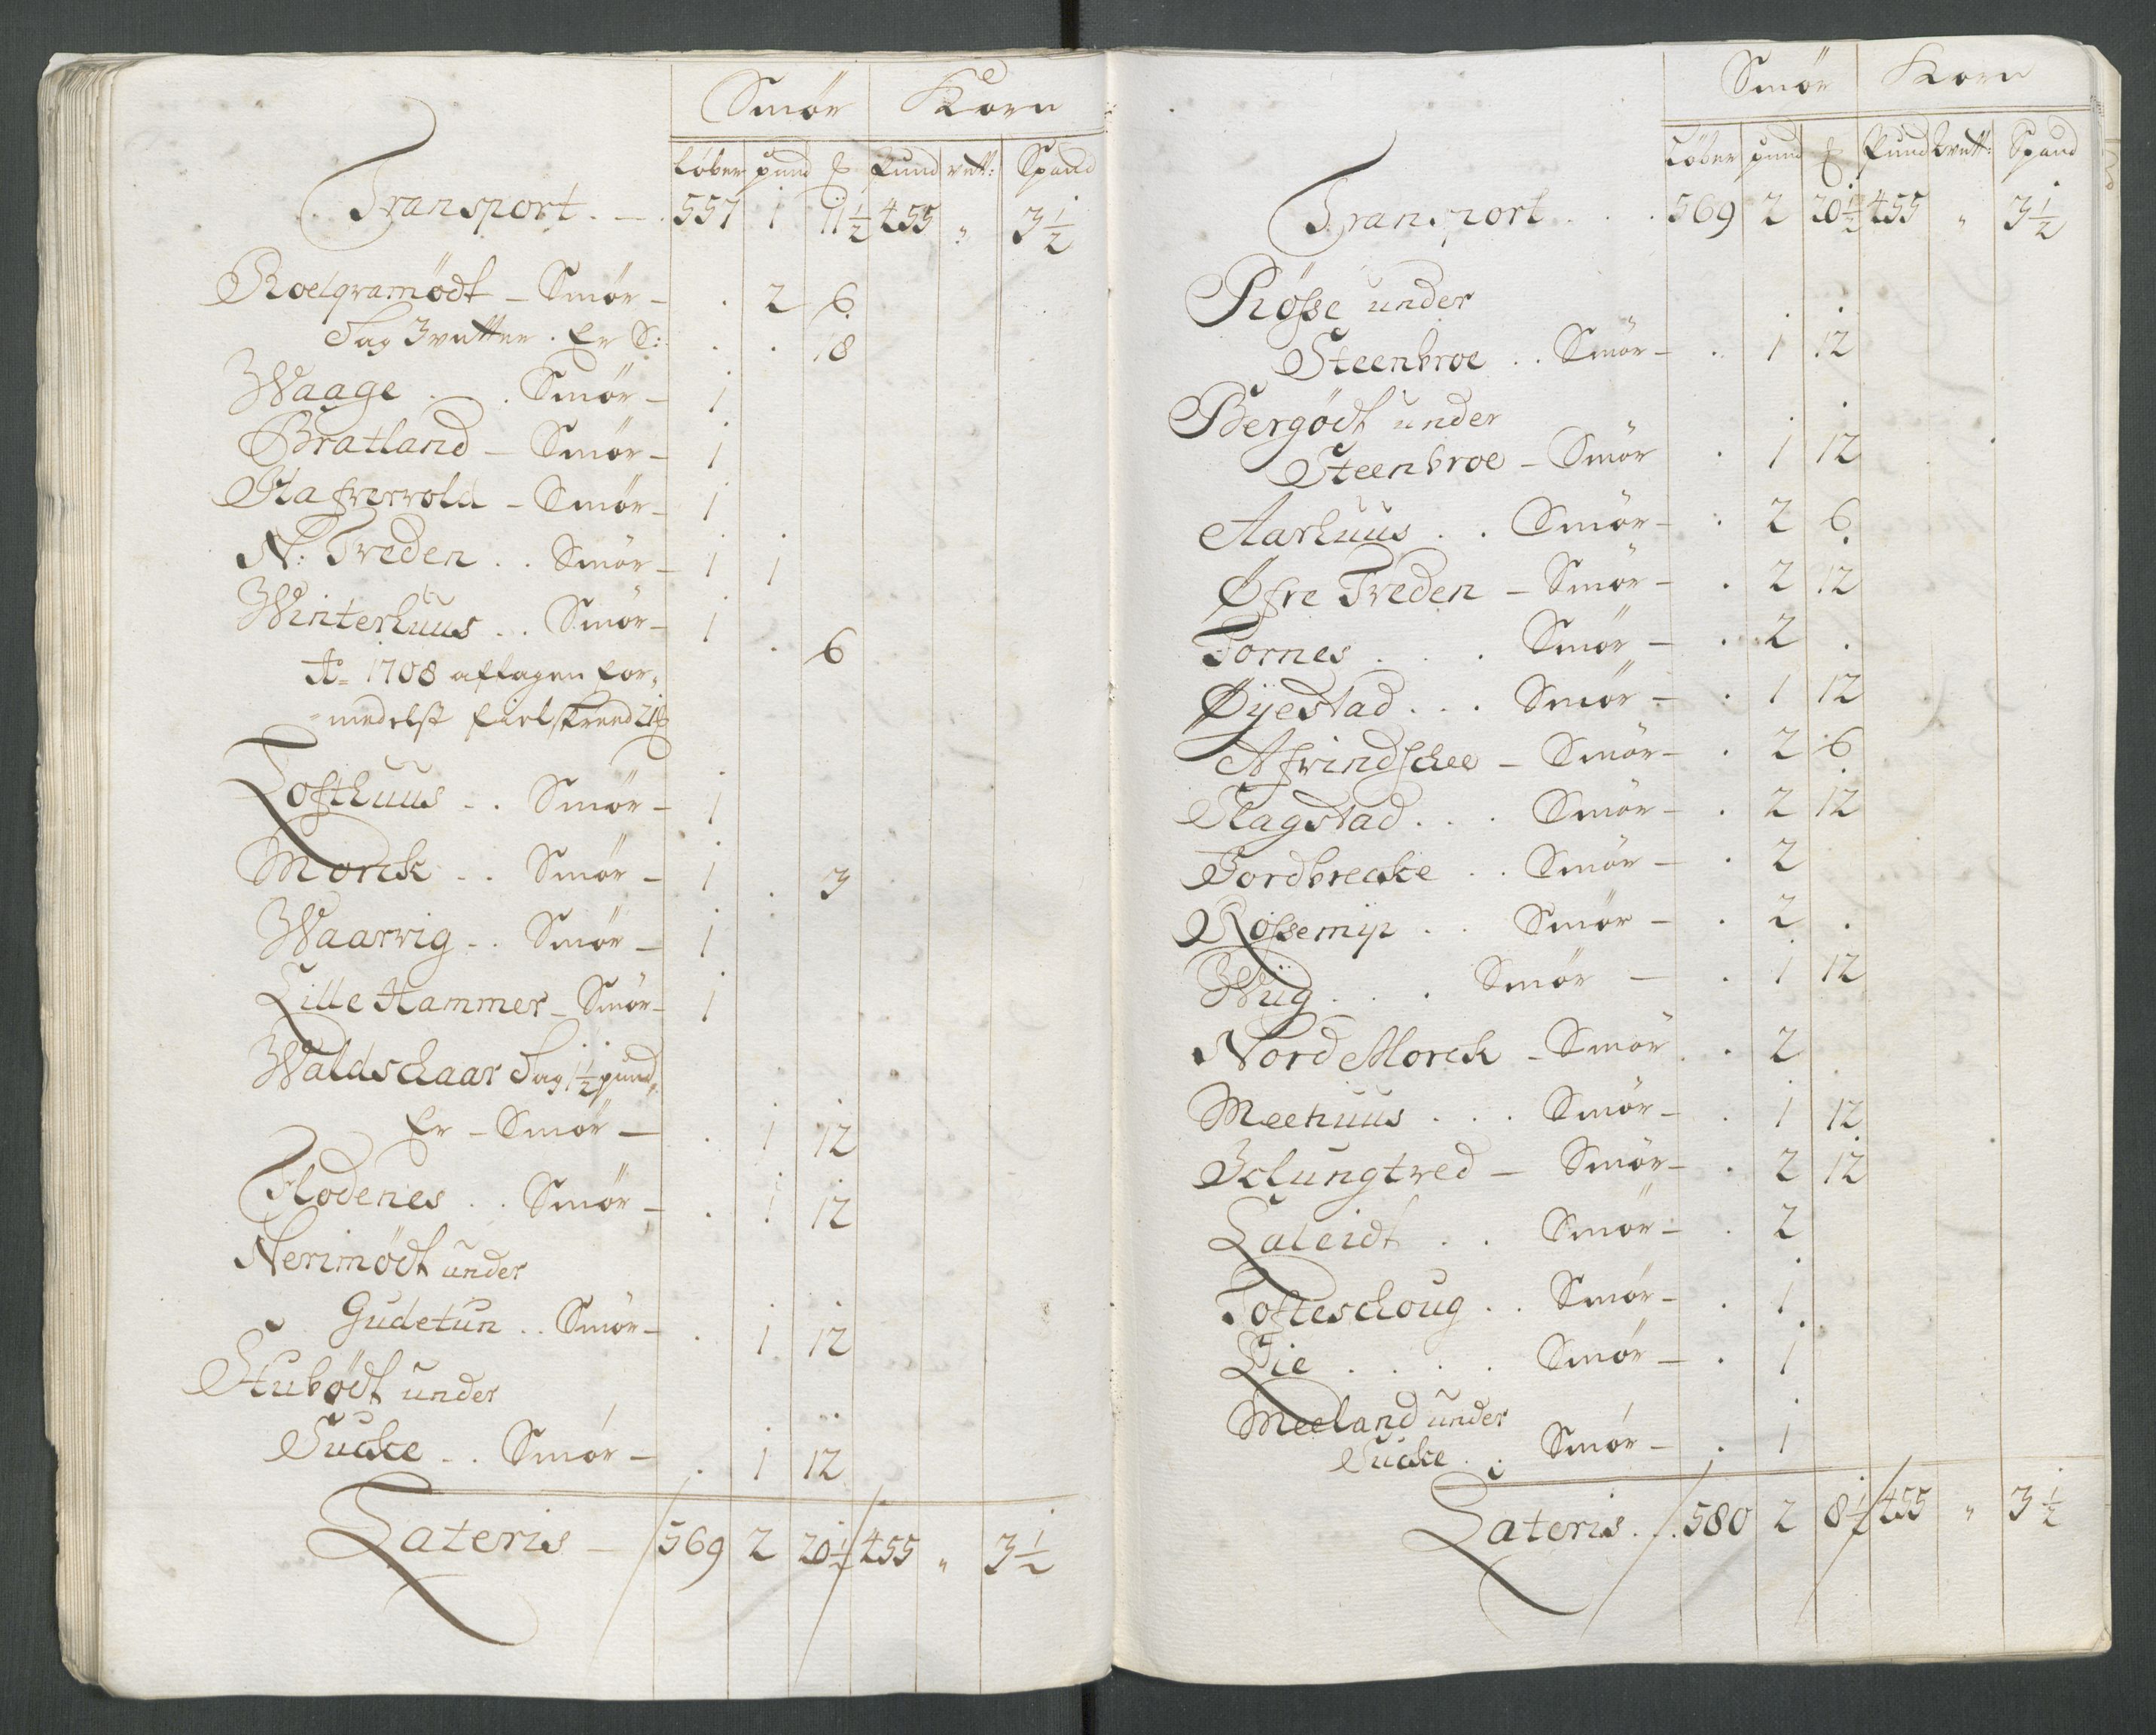 Smör Korn
Löber pund ℔ Pund vett: Spand
Transport . — . 557 1 11½ 455 „ 3½
Roelqvamödt — Smör — . 2 6
Sag 3 vetter . Er S: . . 18
Waage . . Smör — 1
Bratland — Smör — 1
Hafrevold — Smör — 1
N: Treden . . Smör — 1 1
Winterhuus . . Smör — 1 . 6
Ao 1708 aftagen for„
„medelst Fielskreed 21 ℔
Tofthuus . . Smör — 1
Morck . . Smör — 1 . 3
Waarvig . . Smör — 1
Lille Hammer — Smör — 1
Waldschaar Sag 1½ pund„
Er — Smör — . 1 12
Flodenes . . Smör — . 1 12
Nerimödt under
Gudetun . . Smör — . 1 12
Stubödt under
Sucke . . Smör — . 1 12
Lateris — 569 2 20½ 455 „ 3½
Smör Korn
Löber pund ℔ Pund vett: Spand
Transport . . . 569 2 20½ 455 „ 3½
Rösse under
Steenbroe . . Smör — . 1 12
Bergödt under
Steenbroe — Smör . 1 12
Aarhuus . . Smör — . 2 6
Øfre Treden — Smör — . 2 12
Tornes . . . Smör — . 2 .
Øÿestad . . . Smör — . 1 12
Afrindschee — Smör — . 2 6
Flagstad . . . Smör — . 2 12
Jordbrecke . . Smör — . 2
Rossemyr . . Smör — . 2 .
Wiig . . . Smör — . 1 12
Nord Morck — Smör . . 2
Meehuus . . . Smör — . 1 12
Iclungtved — Smör — . 2 12
Laleidt . . Smör — . 2
Tofteschoug . . Smör — . 1
Lie . . . . Smör — . 1
Meeland under
Sucke . . Smör — . 1
Lateris . . 580 2 8½ 455 „ 3½